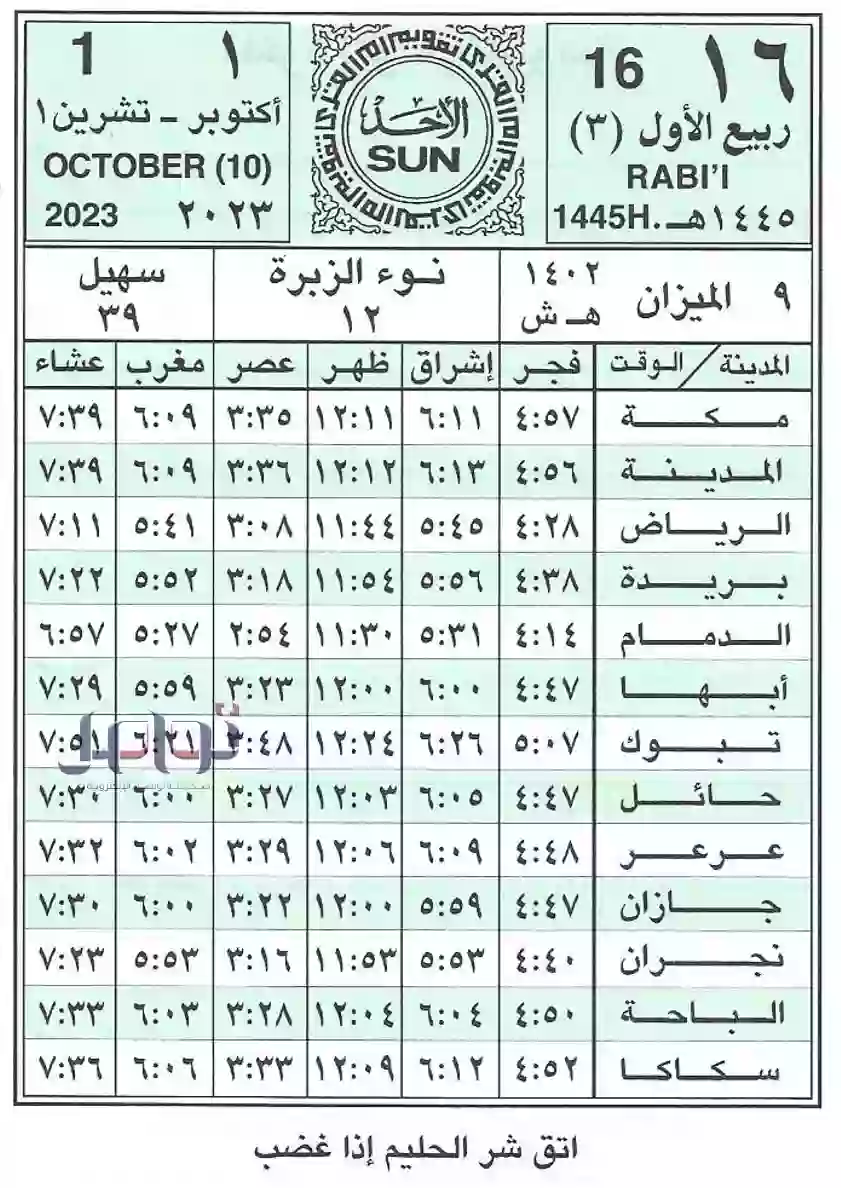 ١٦ 16
ربيع الأول (٣)
RABI'I
1445H. ١٤٤٥هـ
تقويم أم القرى
الأحد
SUN
1 ١
أكتوبر - تشرين ١
OCTOBER (10)
2023 ٢٠٢٣
٩ الميزان ١٤٠٢ هـ ش
نوء الزبرة ١٢
سهيل ٣٩
المدينة / الوقت فجر إشراق ظهر عصر مغرب عشاء
مكة ٤:٥٧ ٦:١١ ١٢:١١ ٣:٣٥ ٦:٠٩ ٧:٣٩
المدينة ٤:٥٦ ٦:١٣ ١٢:١٢ ٣:٣٦ ٦:٠٩ ٧:٣٩
الرياض ٤:٢٨ ٥:٤٥ ١١:٤٤ ٣:٠٨ ٥:٤١ ٧:١١
بريدة ٤:٣٨ ٥:٥٦ ١١:٥٤ ٣:١٨ ٥:٥٢ ٧:٢٢
الدمام ٤:١٤ ٥:٣١ ١١:٣٠ ٢:٥٤ ٥:٢٧ ٦:٥٧
أبها ٤:٤٧ ٦:٠٠ ١٢:٠٠ ٣:٢٣ ٥:٥٩ ٧:٢٩
تبوك ٥:٠٧ ٦:٢٦ ١٢:٢٤ ٣:٤٨ ٦:٢١ ٧:٥١
حائل ٤:٤٧ ٦:٠٥ ١٢:٠٣ ٣:٢٧ ٦:٠٠ ٧:٣٠
عرعر ٤:٤٨ ٦:٠٩ ١٢:٠٦ ٣:٢٩ ٦:٠٢ ٧:٣٢
جازان ٤:٤٧ ٥:٥٩ ١٢:٠٠ ٣:٢٢ ٦:٠٠ ٧:٣٠
نجران ٤:٤٠ ٥:٥٣ ١١:٥٣ ٣:١٦ ٥:٥٣ ٧:٢٣
الباحة ٤:٥٠ ٦:٠٤ ١٢:٠٤ ٣:٢٨ ٦:٠٣ ٧:٣٣
سكاكا ٤:٥٢ ٦:١٢ ١٢:٠٩ ٣:٣٣ ٦:٠٦ ٧:٣٦
اتق شر الحليم إذا غضب